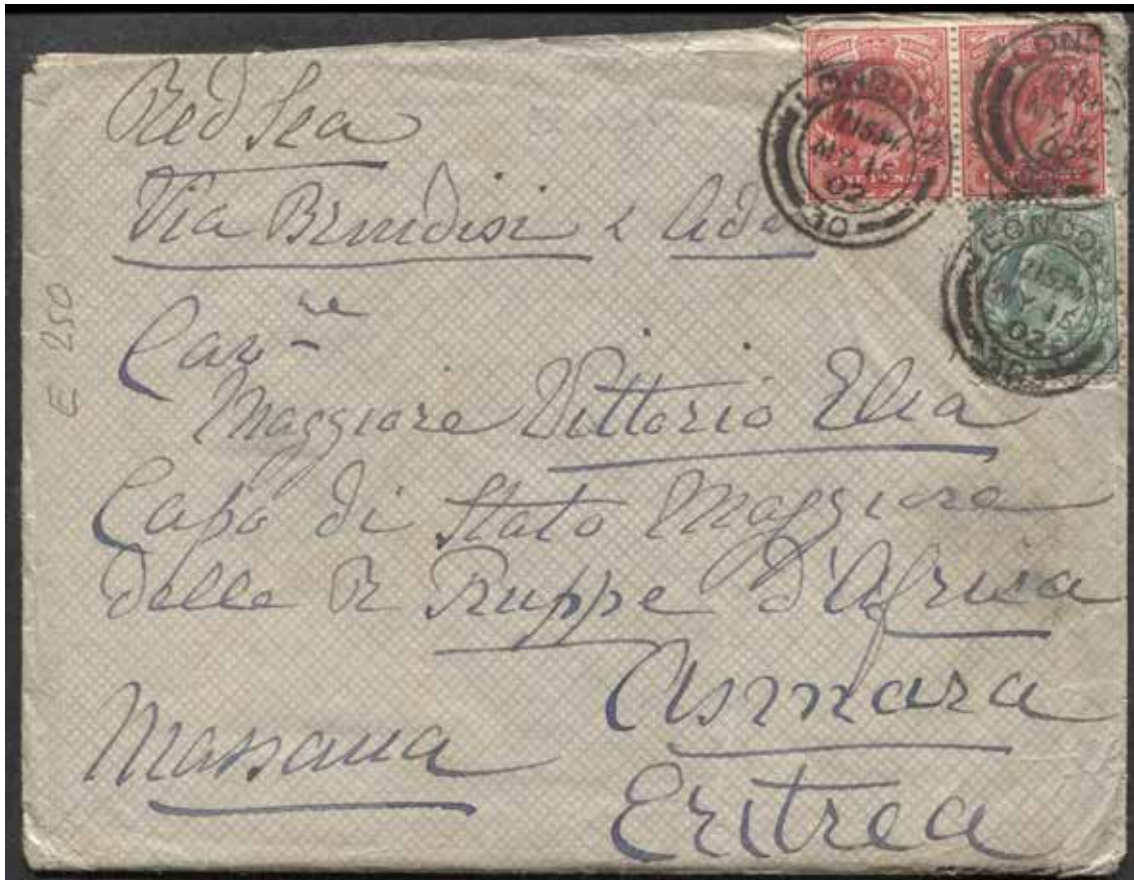 Red Sea
Via Brindisi & Aden
Cav.re
Maggiore Vittorio Elia
Capo di Stato Maggiore
delle R Truppe d'Africa
Asmara
Massaua
Eritrea
E 250
LONDON
7.15 PM
MY 15
02
30
LONDON
7.15 PM
MY 15
02
LONDON
7.15 PM
MY 15
02
30